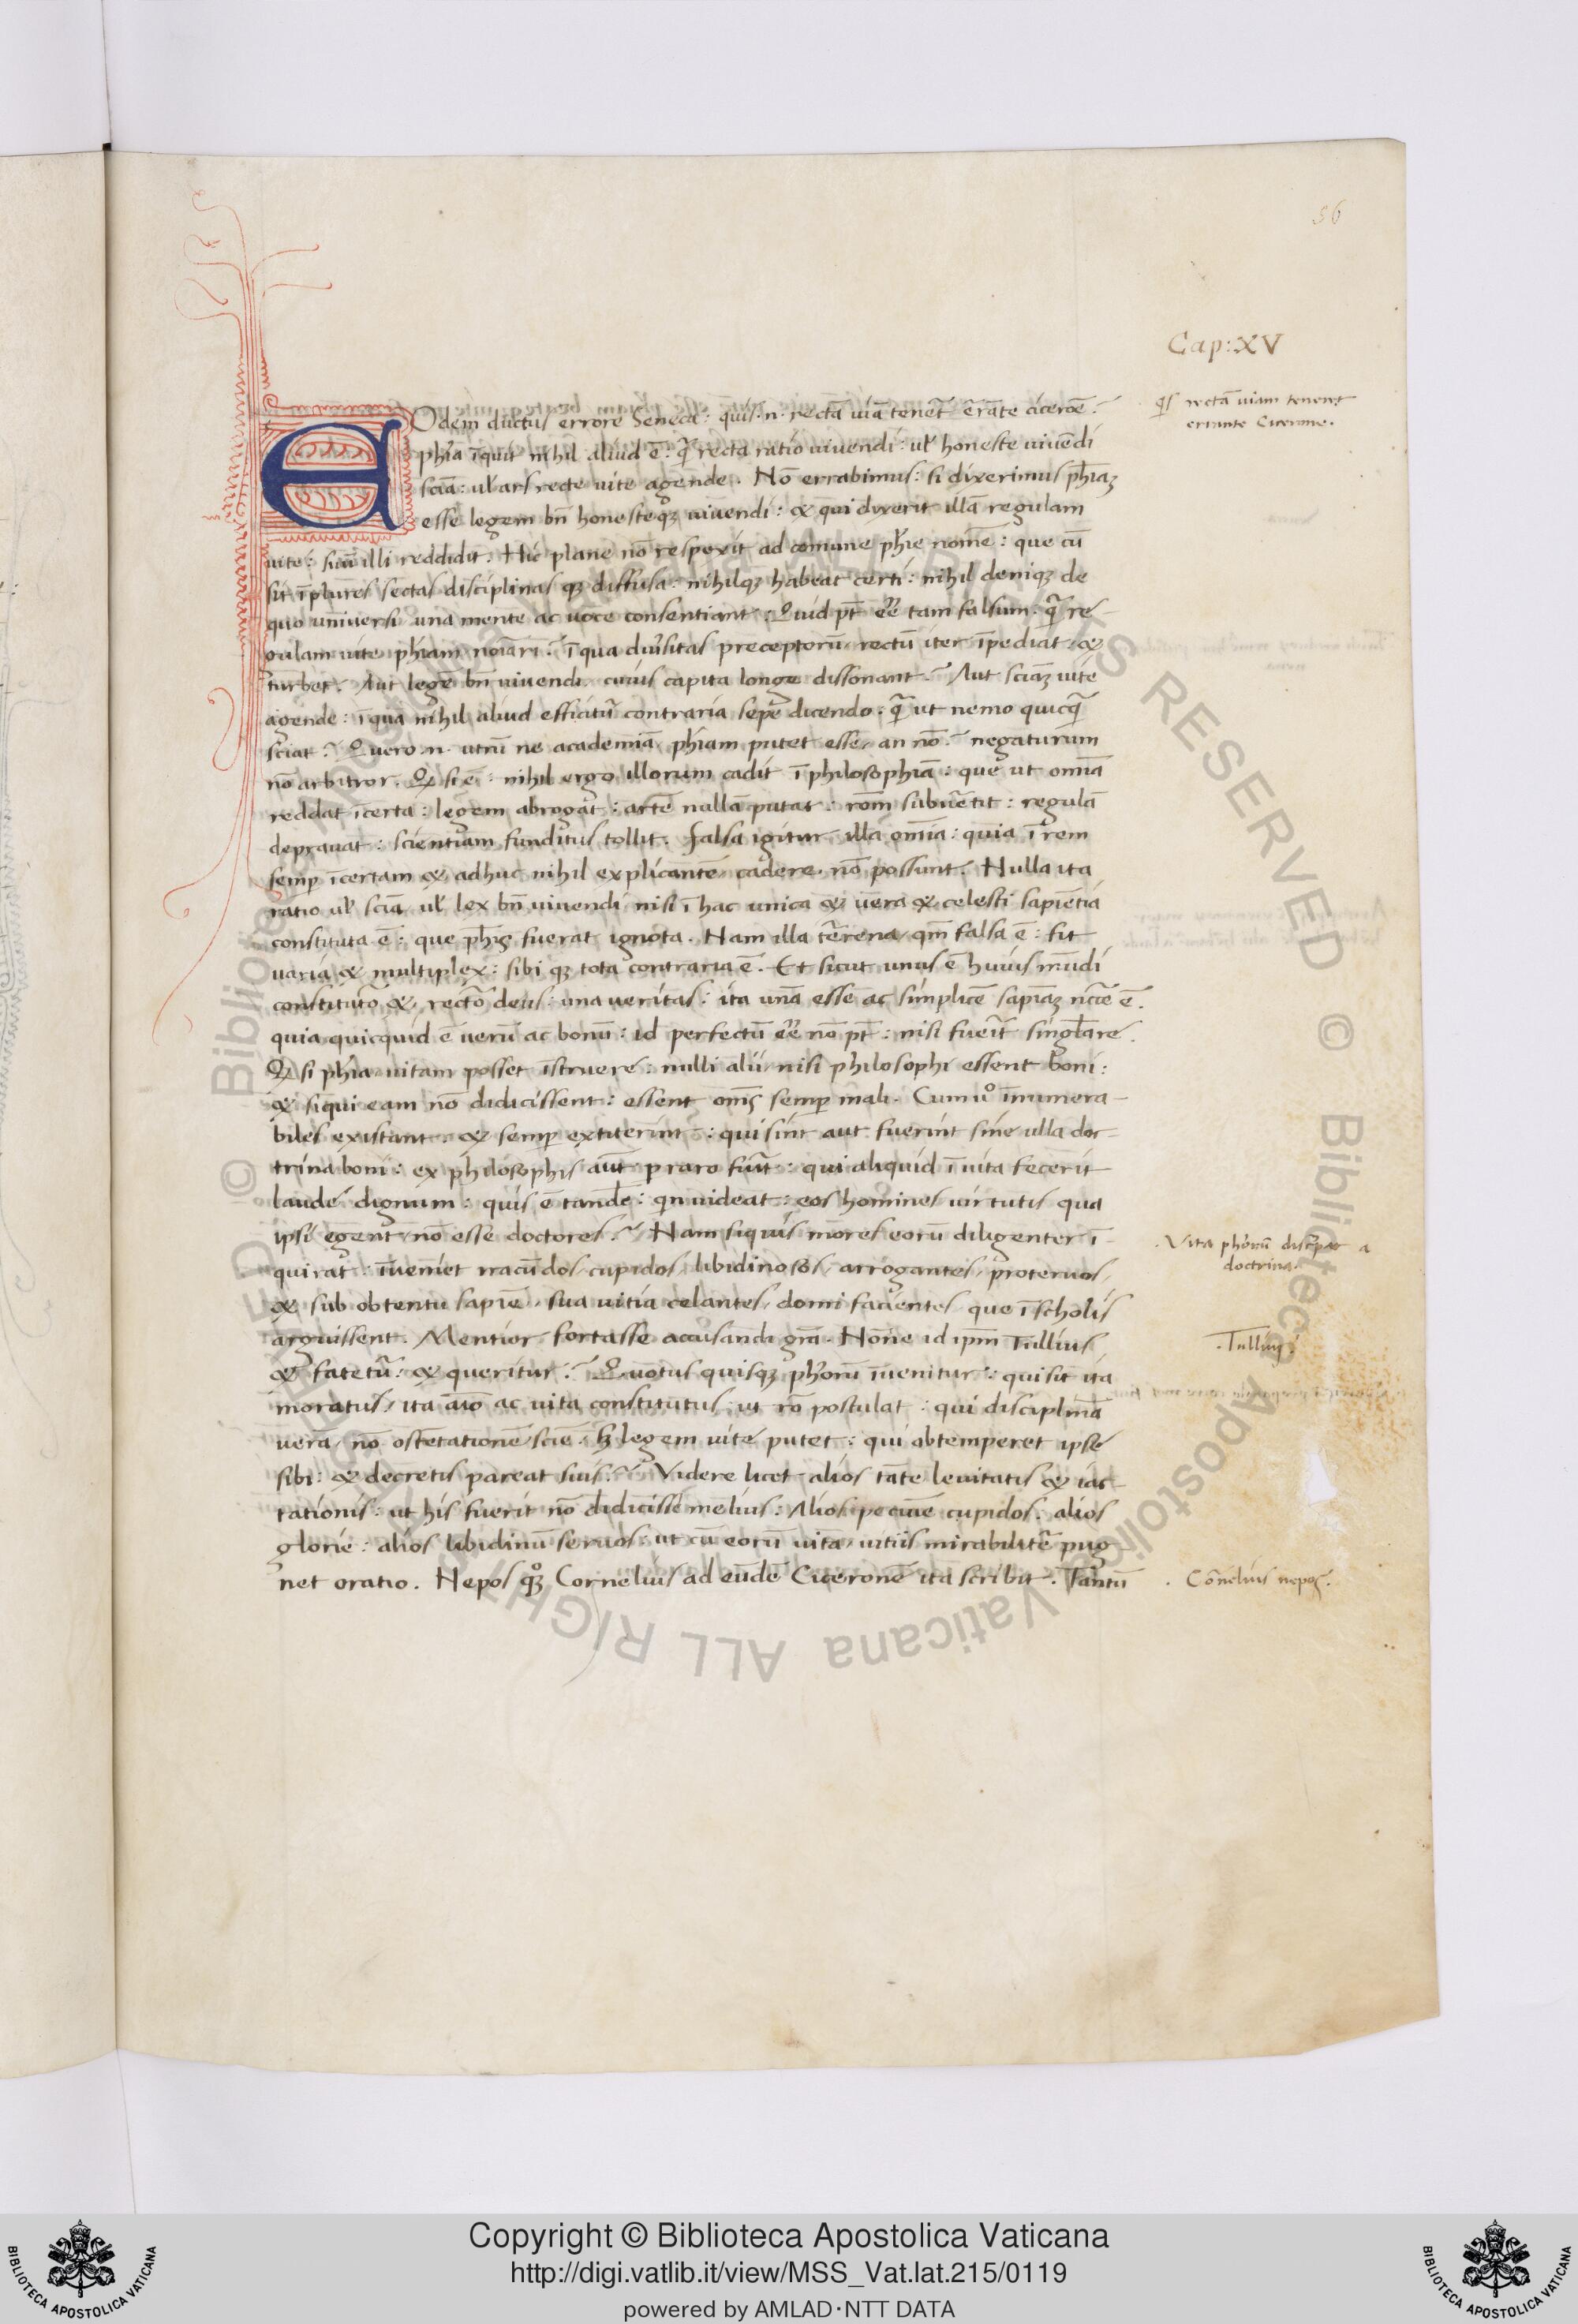 56
Cap: XV
EOdem ductus errore Seneca: quis .n. rectā uiā tenet̄ erāte cicerōe?
qs rectā uiam teneret
errante Cicerone.
phia īquit nihil aliud ē: q̄ recta ratio uiuendi: uł honeste uiuēdi
sciā: uł ars recte uite agende. Nō errabimus: si dixerimus phiaʒ
esse legem bn̄ honesteqʒ uiuendi: & qui dixerit illā regulam
uite: suū illi reddidit. Hic plane nō respexit ad comune phie nomē: que cū
sit ī plures sectas disciplinas qʒ diffusa: nihilqʒ habeat certi: nihil deniqʒ de
quo uniuersi una mente ac uoce consentiant: Quid pt̄ eē tam falsum: q̄ re-
gulam uite phiam noīari? ī qua diusitas preceptorū rectū iter īpediat &
turbet? Aut legē bn̄ uiuendi cuius capita longe dissonant? Aut sciaʒ uite
agende: ī qua nihil aliud efficitur̄ contraria sepe dicendo: q̄ ut nemo quicq̄
sciat? Quero .n. utrū ne academiā phiam putet esse an nō? negaturum
nō arbitror. Q si ē: nihil ergo illorum cadit ī philosophiā: que ut omīa
reddat īcerta: legem abrogat: artē nullā putat: rōm subuertit: regulā
deprauat: scientiam funditus tollit. falsa igitur illa omīa: quia ī rem
semp īcertam & adhuc nihil explicantē cadere nō possunt. Nulla ita
ratio uł sciā uł lex bn̄ uiuendi nisi ī hac unica & uera & celesti sapientia
constituta ē: que phis fuerat ignota. Nam illa terrena qm̄ falsa ē: fit
uaria & multiplex: sibi qʒ tota contraria ē. Et sicut unus ē huius mūdi
constitutor̄ & rector̄ deus: una ueritas: ita unā esse ac simplicē sapiaʒ nccē ē.
quia quicquid ē uerū ac bonū: id perfectū eē nō pt̄: nisi fuerīt singłare.
Q si phia uitam posset īstruere: nulli alii nisi philosophi essent boni:
& siqui eam nō didicissent: essent oms semp mali. Cum uº īnumera-
biles existant & semp extiterint: qui sint aut fuerint sine ulla doc-
trina boni: ex philosophis aūt praro fuīt: qui aliquid ī uita fecerit
laude dignum: quis ē tandē: qn uideat: eos homines uirtutis qua
ipsi egent nō esse doctores? Nam siquis mores eorū diligenter ī-
Vita phorū discrpat a
doctrina.
quirat: īueniet iracūdos cupidos libidinosos arrogantes proteruos
& sub obtentu sapiē sua uitia celantes domi facientes que ī scholis
arguissent. Mentior fortasse accusandi grā. Nōne id ipm̄ Tullius
Tullius
& fatetur̄: & queritur? Quotus quisqʒ phorū īuenitur: qui sit ita
moratus ita aīo ac uita constitutus ut rō postulat: qui disciplinā
uerā nō ostētationē sciē sʒ legem uite putet: qui obtemperet ipse
sibi: & decretis pareat suis? Videre licet alios tāte leuitatis & iac-
tationis: ut his fuerit nō didicisse melius: Alios pecunie cupidos: alios
glorie: alios libidinū seruos: ut cū eorū uitā uitiis mirabiliter̄ pug
net oratio. Nepos qºʒ Cornelius ad eūdē Ciceronē ita scribit. Tantū
Cornelius nepos.
© Biblioteca Apostolica Vaticana ALL RIGHTS RESERVED
Copyright © Biblioteca Apostolica Vaticana
http://digi.vatlib.it/view/MSS_Vat.lat.215/0119
powered by AMLAD·NTT DATA
BIBLIOTECA APOSTOLICA VATICANA
BIBLIOTECA APOSTOLICA VATICANA